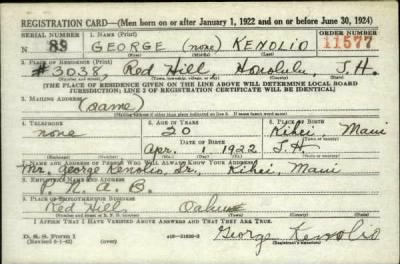 REGISTRATION CARD—(Men born on or after January 1, 1922 and on or before June 30, 1924)
SERIAL NUMBER 1. NAME (Print) ORDER NUMBER
N 89 GEORGE (none) KENOLIO 11577
(First) (Middle) (Last)
2. PLACE OF RESIDENCE (Print)
#3038, Red Hill Honolulu, T.H.
(Number and street) (Town, township, village, or city) (County) (State)
(THE PLACE OF RESIDENCE GIVEN ON THE LINE ABOVE WILL DETERMINE LOCAL BOARD
JURISDICTION; LINE 2 OF REGISTRATION CERTIFICATE WILL BE IDENTICAL)
3. MAILING ADDRESS
(same)
(Mailing address if other than place indicated on line 2. If same insert word same)
4. TELEPHONE 5. AGE IN YEARS 6. PLACE OF BIRTH
none 20 Kihei, Maui
DATE OF BIRTH
Apr. 1, 1922 T.H.
(Mo.) (Day) (Yr.)
7. NAME AND ADDRESS OF PERSON WHO WILL ALWAYS KNOW YOUR ADDRESS
Mr. George Kenolio, Sr., Kihei, Maui
8. EMPLOYER'S NAME AND ADDRESS
P.N.A.B.
9. PLACE OF EMPLOYMENT OR BUSINESS
Red Hill Oahu
(Number and street or R. F. D. number) (Town) (County) (State)
I AFFIRM THAT I HAVE VERIFIED ABOVE ANSWERS AND THAT THEY ARE TRUE.
D. S. S. Form 1
(Revised 6-1-42) (over) George Kenolio
(Registrant's signature)